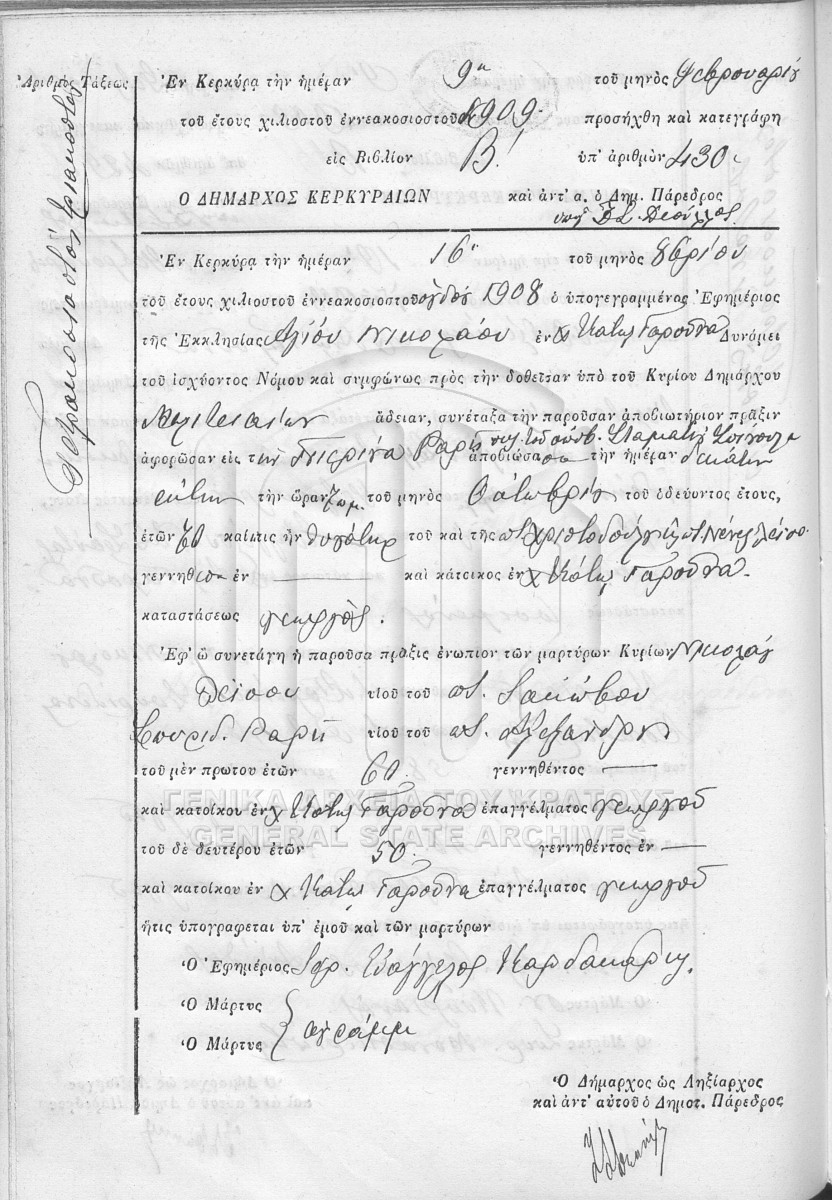 Ἀριθμὸς Τάξεως
Τετρακοσιοστὸν τριακοστὸν
Ἐν Κερκύρᾳ τὴν ἡμέραν 9η τοῦ μηνὸς Φεβρουαρίου
τοῦ ἔτους χιλιοστοῦ ἐννεακοσιοστοῦ 1909 προσήχθη καὶ κατεγράφη
εἰς Βιβλίον Β! ὑπ' ἀριθμὸν 430
Ο ΔΗΜΑΡΧΟΣ ΚΕΡΚΥΡΑΙΩΝ καὶ ἀντ' α. ὁ Δημ. Πάρεδρος
Ἐν Κερκύρᾳ τὴν ἡμέραν 16 τοῦ μηνὸς 8βρίου
τοῦ ἔτους χιλιοστοῦ ἐννεακοσιοστοῦ ὀγδόου 1908 ὁ ὑπογεγραμμένος Ἐφημέριος
τῆς Ἐκκλησίας Ἁγίου Νικολάου ἐν χ Κάτω Γαροῦνα Δυνάμει
τοῦ ἰσχύοντος Νόμου καὶ συμφώνως πρὸς τὴν δοθεῖσαν ὑπὸ τοῦ Κυρίου Δημάρχου
Μελιτειαίων ἄδειαν, συνέταξα τὴν παροῦσαν ἀποβιωτήριον πρᾶξιν
ἀφορῶσαν εἰς τὴν Πιερίνα Ραρῆ ἀποβιώσασα τὴν ἡμέραν δεκάτην
ἕκτην τὴν ὥραν 7 π.μ. τοῦ μηνὸς Ὀκτωβρίου τοῦ ὁδεύοντος ἔτους,
ἐτῶν 70 καὶ ἥτις ἦν θυγάτηρ τοῦ καὶ τῆς ποτ. Χριστοδούλου
γεννηθεῖσα ἐν — καὶ κάτοικος ἐν χ Κάτω Γαροῦνα.
καταστάσεως γεωργὸς.
Ἐφ' ᾧ συνετάγη ἡ παροῦσα πρᾶξις ἐνώπιον τῶν μαρτύρων Κυρίων Νικολάου
Πλείσου υἱοῦ τοῦ ποτ. Ἰακώβου
Σπυρίδ. Ραρῆ υἱοῦ τοῦ ποτ. Ἀλεξάνδρου
τοῦ μὲν πρώτου ἐτῶν 60 γεννηθέντος —
καὶ κατοίκου ἐν χ Κάτω Γαροῦνα ἐπαγγέλματος γεωργοῦ
ΓΕΝΙΚΑ ΑΡΧΕΙΑ ΤΟΥ ΚΡΑΤΟΥΣ
GENERAL STATE ARCHIVES
τοῦ δὲ δευτέρου ἐτῶν 50. γεννηθέντος ἐν —
καὶ κατοίκου ἐν χ Κάτω Γαροῦνα ἐπαγγέλματος γεωργοῦ
ἥτις ὑπογράφεται ὑπ' ἐμοῦ καὶ τῶν μαρτύρων
Ὁ Ἐφημέριος Ἱερ. Εὐάγγελος Καρδακάρης
Ὁ Μάρτυς
Ὁ Μάρτυς ἀγράμμ
Ὁ Δήμαρχος ὡς Ληξίαρχος
καὶ ἀντ' αὐτοῦ ὁ Δημοτ. Πάρεδρος